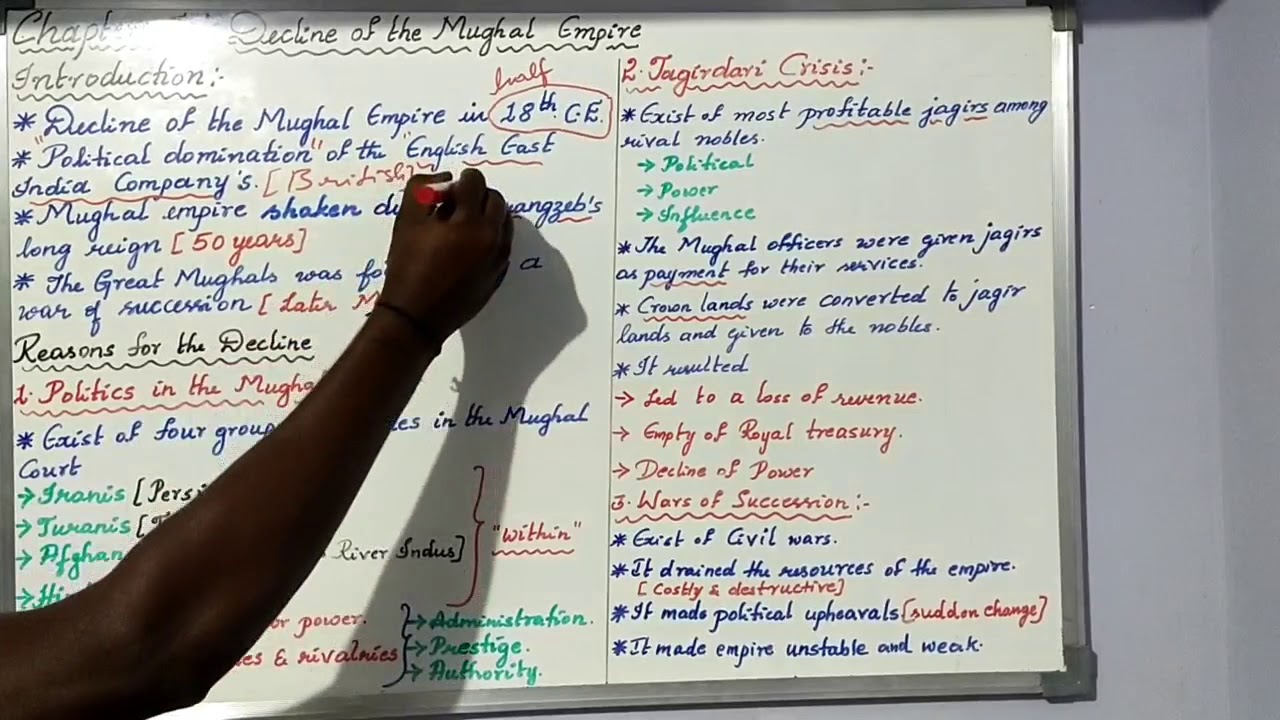 Decline of the Mughal Empire
Introduction:-
half
* Decline of the Mughal Empire in 18th C.E.
* "Political domination" of the "English East
India Company's. [British]
* Mughal empire shaken
long reign [50 years]
* The Great Mughals was a
war of succession [Later
Reasons for the Decline
1. Politics in the
* Exist of four in the Mughal
Court
→ Iranis
→ Turanis
River Indus]
"within"
power.
& rivalries
→ Administration.
→ Prestige.
→ Authority.
2. Jagirdari Crisis:-
* Exist of most profitable jagirs among
rival nobles.
→ Political
→ Power
→ Influence
* The Mughal officers were given jagirs
as payment for their services.
* Crown lands were converted to jagir
lands and given to the nobles.
* It resulted
→ Led to a loss of revenue.
→ Empty of Royal treasury.
→ Decline of Power
3. Wars of Succession:-
* Exist of Civil wars.
* It drained the resources of the empire.
[Costly & destructive]
* It made political upheavals [sudden change]
* It made empire unstable and weak.